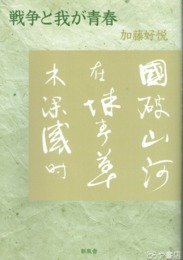 戦争と我が青春
加藤好悦
國破山河
在城春草
木深感時